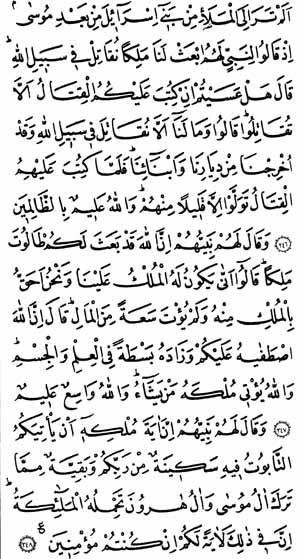 اَلَمْ تَرَ اِلَى الْمَلَاِ مِنْۢ بَنِيْٓ اِسْرَآءِيْلَ مِنْۢ بَعْدِ مُوْسٰى
اِذْ قَالُوْا لِنَبِيٍّ لَّهُمُ ابْعَثْ لَنَا مَلِكًا نُّقَاتِلْ فِيْ سَبِيْلِ اللّٰهِ
قَالَ هَلْ عَسَيْتُمْ اِنْ كُتِبَ عَلَيْكُمُ الْقِتَالُ اَلَّا
تُقَاتِلُوْا قَالُوْا وَمَا لَنَآ اَلَّا نُقَاتِلَ فِيْ سَبِيْلِ اللّٰهِ وَقَدْ
اُخْرِجْنَا مِنْ دِيَارِنَا وَاَبْنَآئِنَا فَلَمَّا كُتِبَ عَلَيْهِمُ
الْقِتَالُ تَوَلَّوْا اِلَّا قَلِيْلًا مِّنْهُمْ وَاللّٰهُ عَلِيْمٌۢ بِالظّٰلِمِيْنَ
﴿٢٤٦﴾ وَقَالَ لَهُمْ نَبِيُّهُمْ اِنَّ اللّٰهَ قَدْ بَعَثَ لَكُمْ طَالُوْتَ
مَلِكًا قَالُوْٓا اَنّٰى يَكُوْنُ لَهُ الْمُلْكُ عَلَيْنَا وَنَحْنُ اَحَقُّ
بِالْمُلْكِ مِنْهُ وَلَمْ يُؤْتَ سَعَةً مِّنَ الْمَالِ قَالَ اِنَّ اللّٰهَ
اصْطَفٰىهُ عَلَيْكُمْ وَزَادَهٗ بَسْطَةً فِي الْعِلْمِ وَالْجِسْمِ
وَاللّٰهُ يُؤْتِيْ مُلْكَهٗ مَنْ يَّشَآءُ وَاللّٰهُ وَاسِعٌ عَلِيْمٌ
﴿٢٤٧﴾ وَقَالَ لَهُمْ نَبِيُّهُمْ اِنَّ اٰيَةَ مُلْكِهٖٓ اَنْ يَّاْتِيَكُمُ
التَّابُوْتُ فِيْهِ سَكِيْنَةٌ مِّنْ رَّبِّكُمْ وَبَقِيَّةٌ مِّمَّا
تَرَكَ اٰلُ مُوْسٰى وَاٰلُ هٰرُوْنَ تَحْمِلُهُ الْمَلٰٓئِكَةُ
اِنَّ فِيْ ذٰلِكَ لَاٰيَةً لَّكُمْ اِنْ كُنْتُمْ مُّؤْمِنِيْنَ ﴿٢٤٨﴾ ع